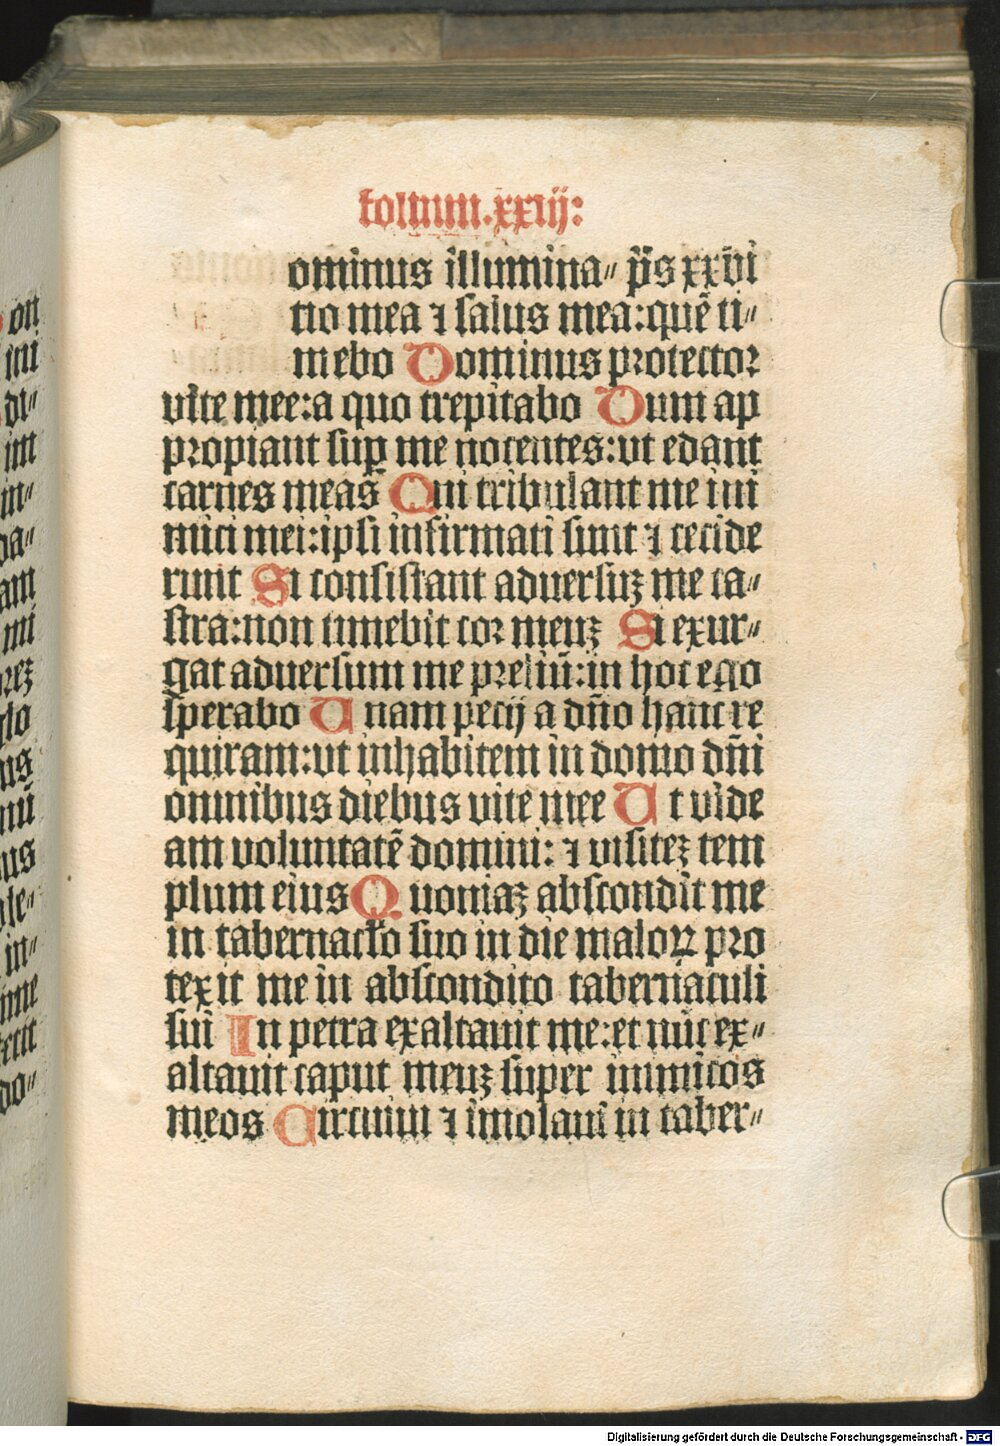 folium.xxiij:
ominus illumina⸗ p̄s xxvi
tio mea ⁊ salus mea:quē ti⸗
mebo Dominus protector
vite mee:a quo trepitabo Dum ap
propiant suꝑ me nocentes:ut edant
carnes meas Qui tribulant me ini
mici mei:ipsi infirmati sunt ⁊ cecide
runt Si consistant adversuꝫ me ca⸗
stra:non timebit cor meuꝫ Si exur⸗
gat adversum me preliū:in hoc ego
sperabo Unam pecij a dño hanc re
quiram:ut inhabitem in domo dñi
omnibus diebus vite mee Ut vide
am voluntatē domini: ⁊ visiteꝫ tem
plum eius Quoniaꝫ abscondit me
in tabernac̄lo suo in die maloꝝ pro
texit me in abscondito tabernaculi
sui In petra exaltavit me:et nūc ex⸗
altavit caput meuꝫ super inimicos
meos Circuivi ⁊ īmolavi in taber⸗
on
ni
di⸗
im
in⸗
da⸗
am
mi
reꝫ
us
nū
us
le⸗
in⸗
ime
do⸗
Digitalisierung gefördert durch die Deutsche Forschungsgemeinschaft - DFG